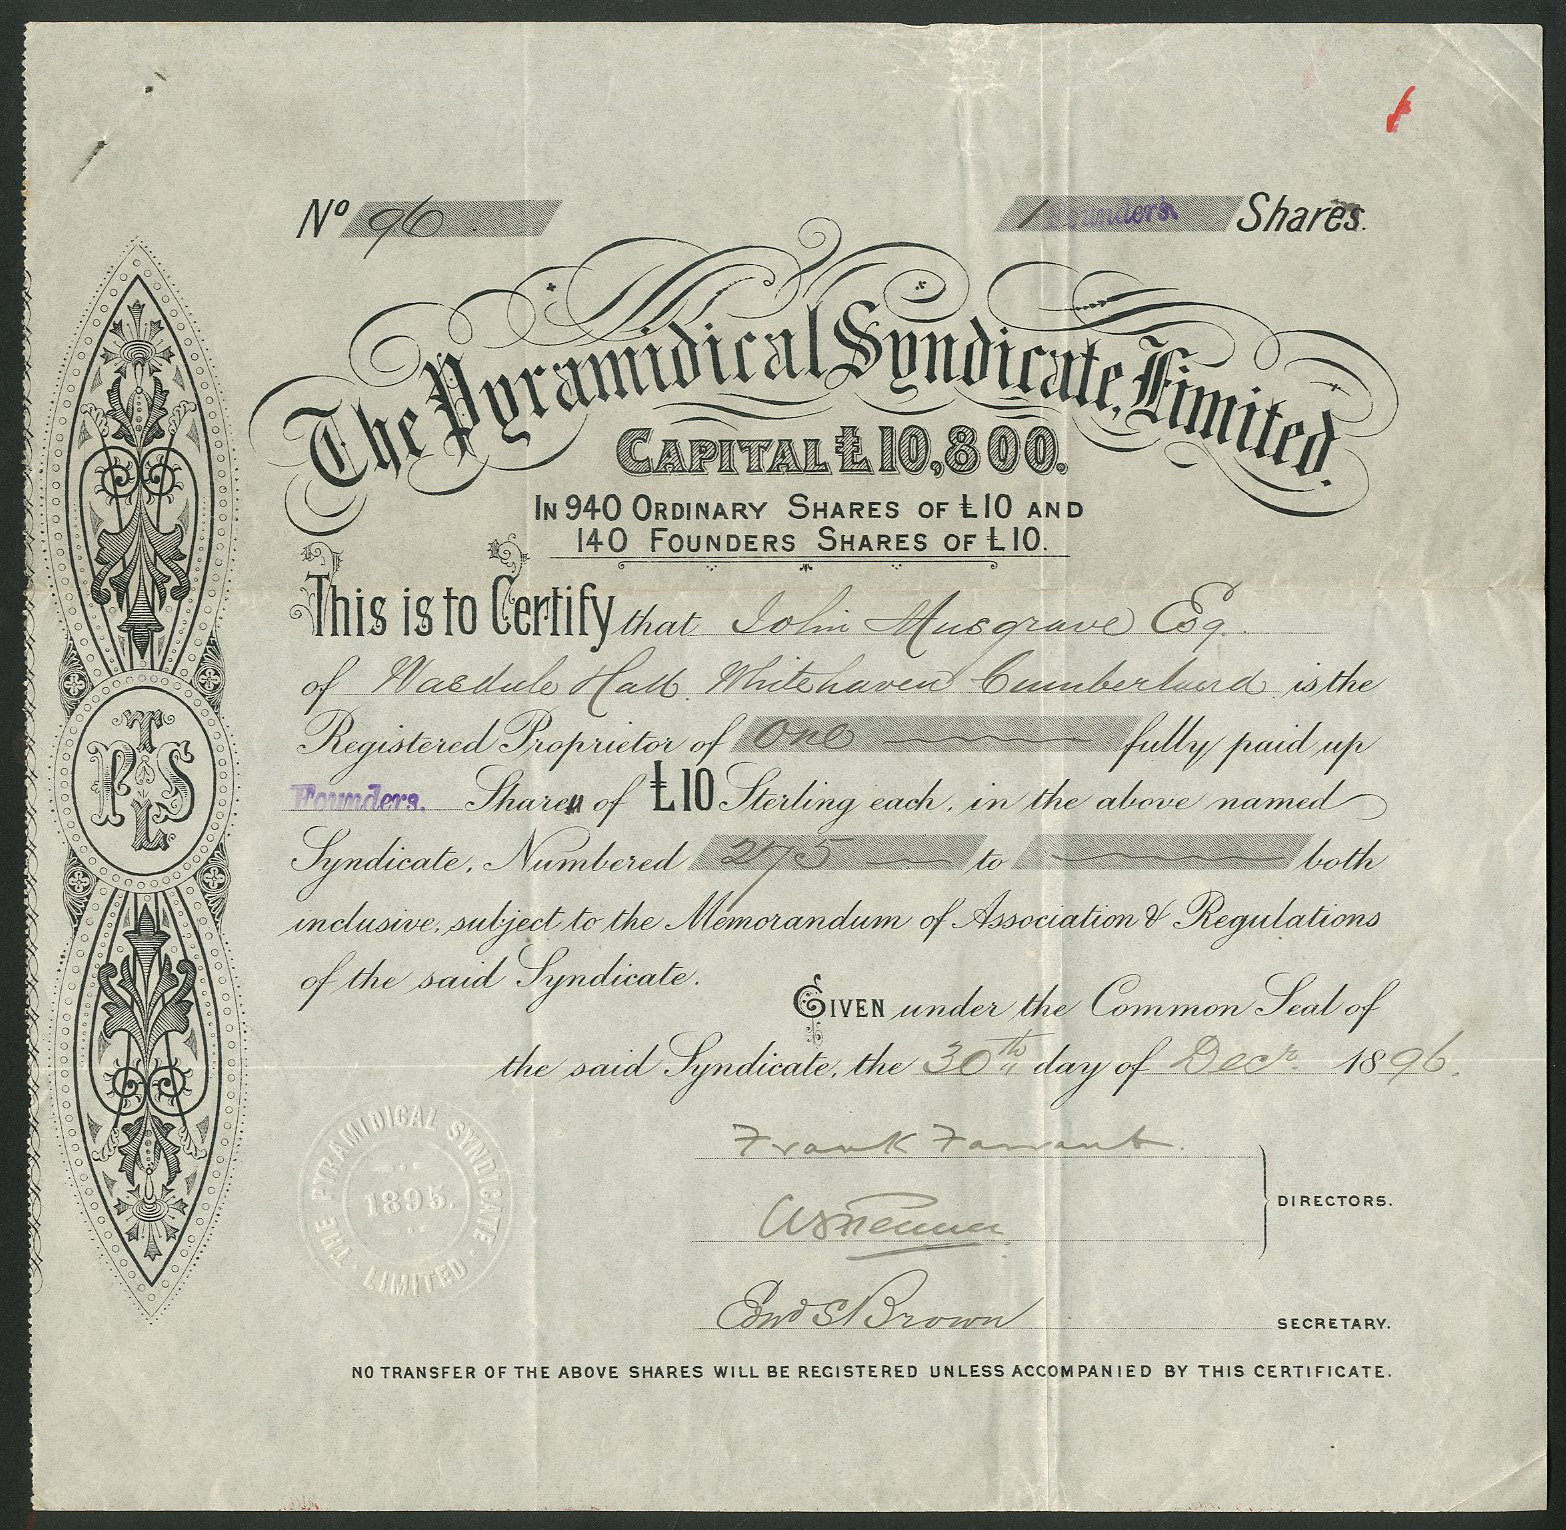 No 96 1 Founders. Shares.
The Pyramidical Syndicate, Limited.
CAPITAL £10,800.
IN 940 ORDINARY SHARES OF £10 AND
140 FOUNDERS SHARES OF £10.
This is to Certify that John Musgrave Esq.
of Wasdale Hall. Whitehaven Cumberland is the
Registered Proprietor of One fully paid up
Founders. Share of £10 Sterling each, in the above named
Syndicate, Numbered 275 to both
inclusive, subject to the Memorandum of Association & Regulations
of the said Syndicate.
GIVEN under the Common Seal of
the said Syndicate, the 30th day of Decr. 1896.
TPSL
THE PYRAMIDICAL SYNDICATE LIMITED
1895.
Frank Farrant.
DIRECTORS.
Edwd S Brown
SECRETARY.
NO TRANSFER OF THE ABOVE SHARES WILL BE REGISTERED UNLESS ACCOMPANIED BY THIS CERTIFICATE.